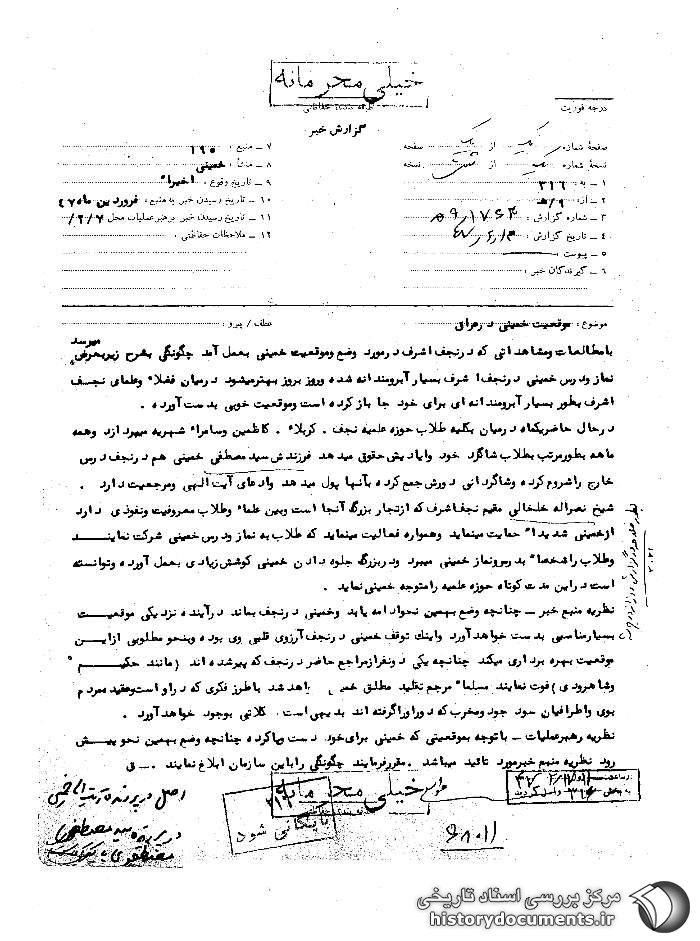 خیلی محرمانه
درجه فوریت
گزارش خبر
صفحهٔ شماره یک از یک صفحه
نسخهٔ شماره از نسخه
۱ - به : ۳۱۶
۲ - از : ۹/ﻫ
۳ - شماره گزارش :
۴ - تاریخ گزارش :
۵ - پیوست
۶ - گیرندگان خبر :
۷ - منبع : ۱۹۵
۸ - منشأ : خمینی
۹ - تاریخ وقوع : اخیرا"
۱۰ - تاریخ رسیدن خبر به منبع : فروردین ماه ۴۷
۱۱ - تاریخ رسیدن خبر برهبر عملیات محل ۲/۷/
۱۲ - ملاحظات حفاظتی :
موضوع : موقعیت خمینی در عراق
عطف / پیرو :
بامطالعات ومشاهداتی که درنجف اشرف درمورد وضع وموقعیت خمینی بعمل آمد چگونگی بشرح زیربعرض میرسد
نماز ودرس خمینی درنجف اشرف بسیار آبرومندانه شده وروز بروز بهترمیشود درمیان فضلاء وعلمای نجف
اشرف بطور بسیار آبرومندانه ای برای خود جا باز کرده است وموقعیت خوبی بدست آورده .
درحال حاضریکماه درمیان بکلیه طلاب حوزه علمیه نجف . کربلاء . کاظمین وسامراء شهریه میپردازد وهمه
ماهه بطورمرتب بطلاب شاگرد خود وایادیش حقوق میدهد فرزندش سید مصطفی خمینی هم درنجف درس
خارج راشروع کرده وشاگردانی دورش جمع کرده بآنها پول میدهد وادعای آیت الهی ومرجعیت دارد .
شیخ نصراله خلخالی مقیم نجف اشرف که ازتجار بزرگ آنجا است وبین علماء وطلاب معروفیت ونفوذی دارد
ازخمینی شدیدا" حمایت مینماید وهمواره فعالیت مینماید که طلاب به نماز ودرس خمینی شرکت نمایند
وطلاب راشخصا" بدرس ونماز خمینی میبرد ودربزرگ جلوه دادن خمینی کوشش زیادی بعمل آورده وتوانسته
است دراین مدت کوتاه حوزه علمیه رامتوجه خمینی نماید .
نظریه منبع خبر - چنانچه وضع بهمین نحو ادامه یابد وخمینی درنجف بماند درآینده نزدیکی موقعیت
بسیارمناسبی بدست خواهد آورد واینک توقف خمینی درنجف آرزوی قلبی وی بوده وبنحو مطلوبی ازاین
موقعیت بهره برداری میکند چنانچه یکی دونفرازمراجع حاضر درنجف که پیرشده اند (مانند حکیم "
وشاهرودی) فوت نمایند مسلما" مرجع تقلید مطلق خمی اهد شد باطرز فکری که دراو است وعقیده مردم
بوی واطرافیان سود جوومخرب که دوراوراگرفته اند بدیهی است . کلاتی بوجود خواهد آورد .
نظریه رهبرعملیات - باتوجه بموقعیتی که خمینی برای خود دست وپاکرده چنانچه وضع بهمین نحو پیش
رود نظریه منبع خبرمورد تائید میباشد . مقررفرمایند چگونگی رابه این سازمان ابلاغ نمایند . - ق
خیلی محرمانه
بایگانی شود
مرکز بررسی اسناد تاریخی
historydocuments.ir